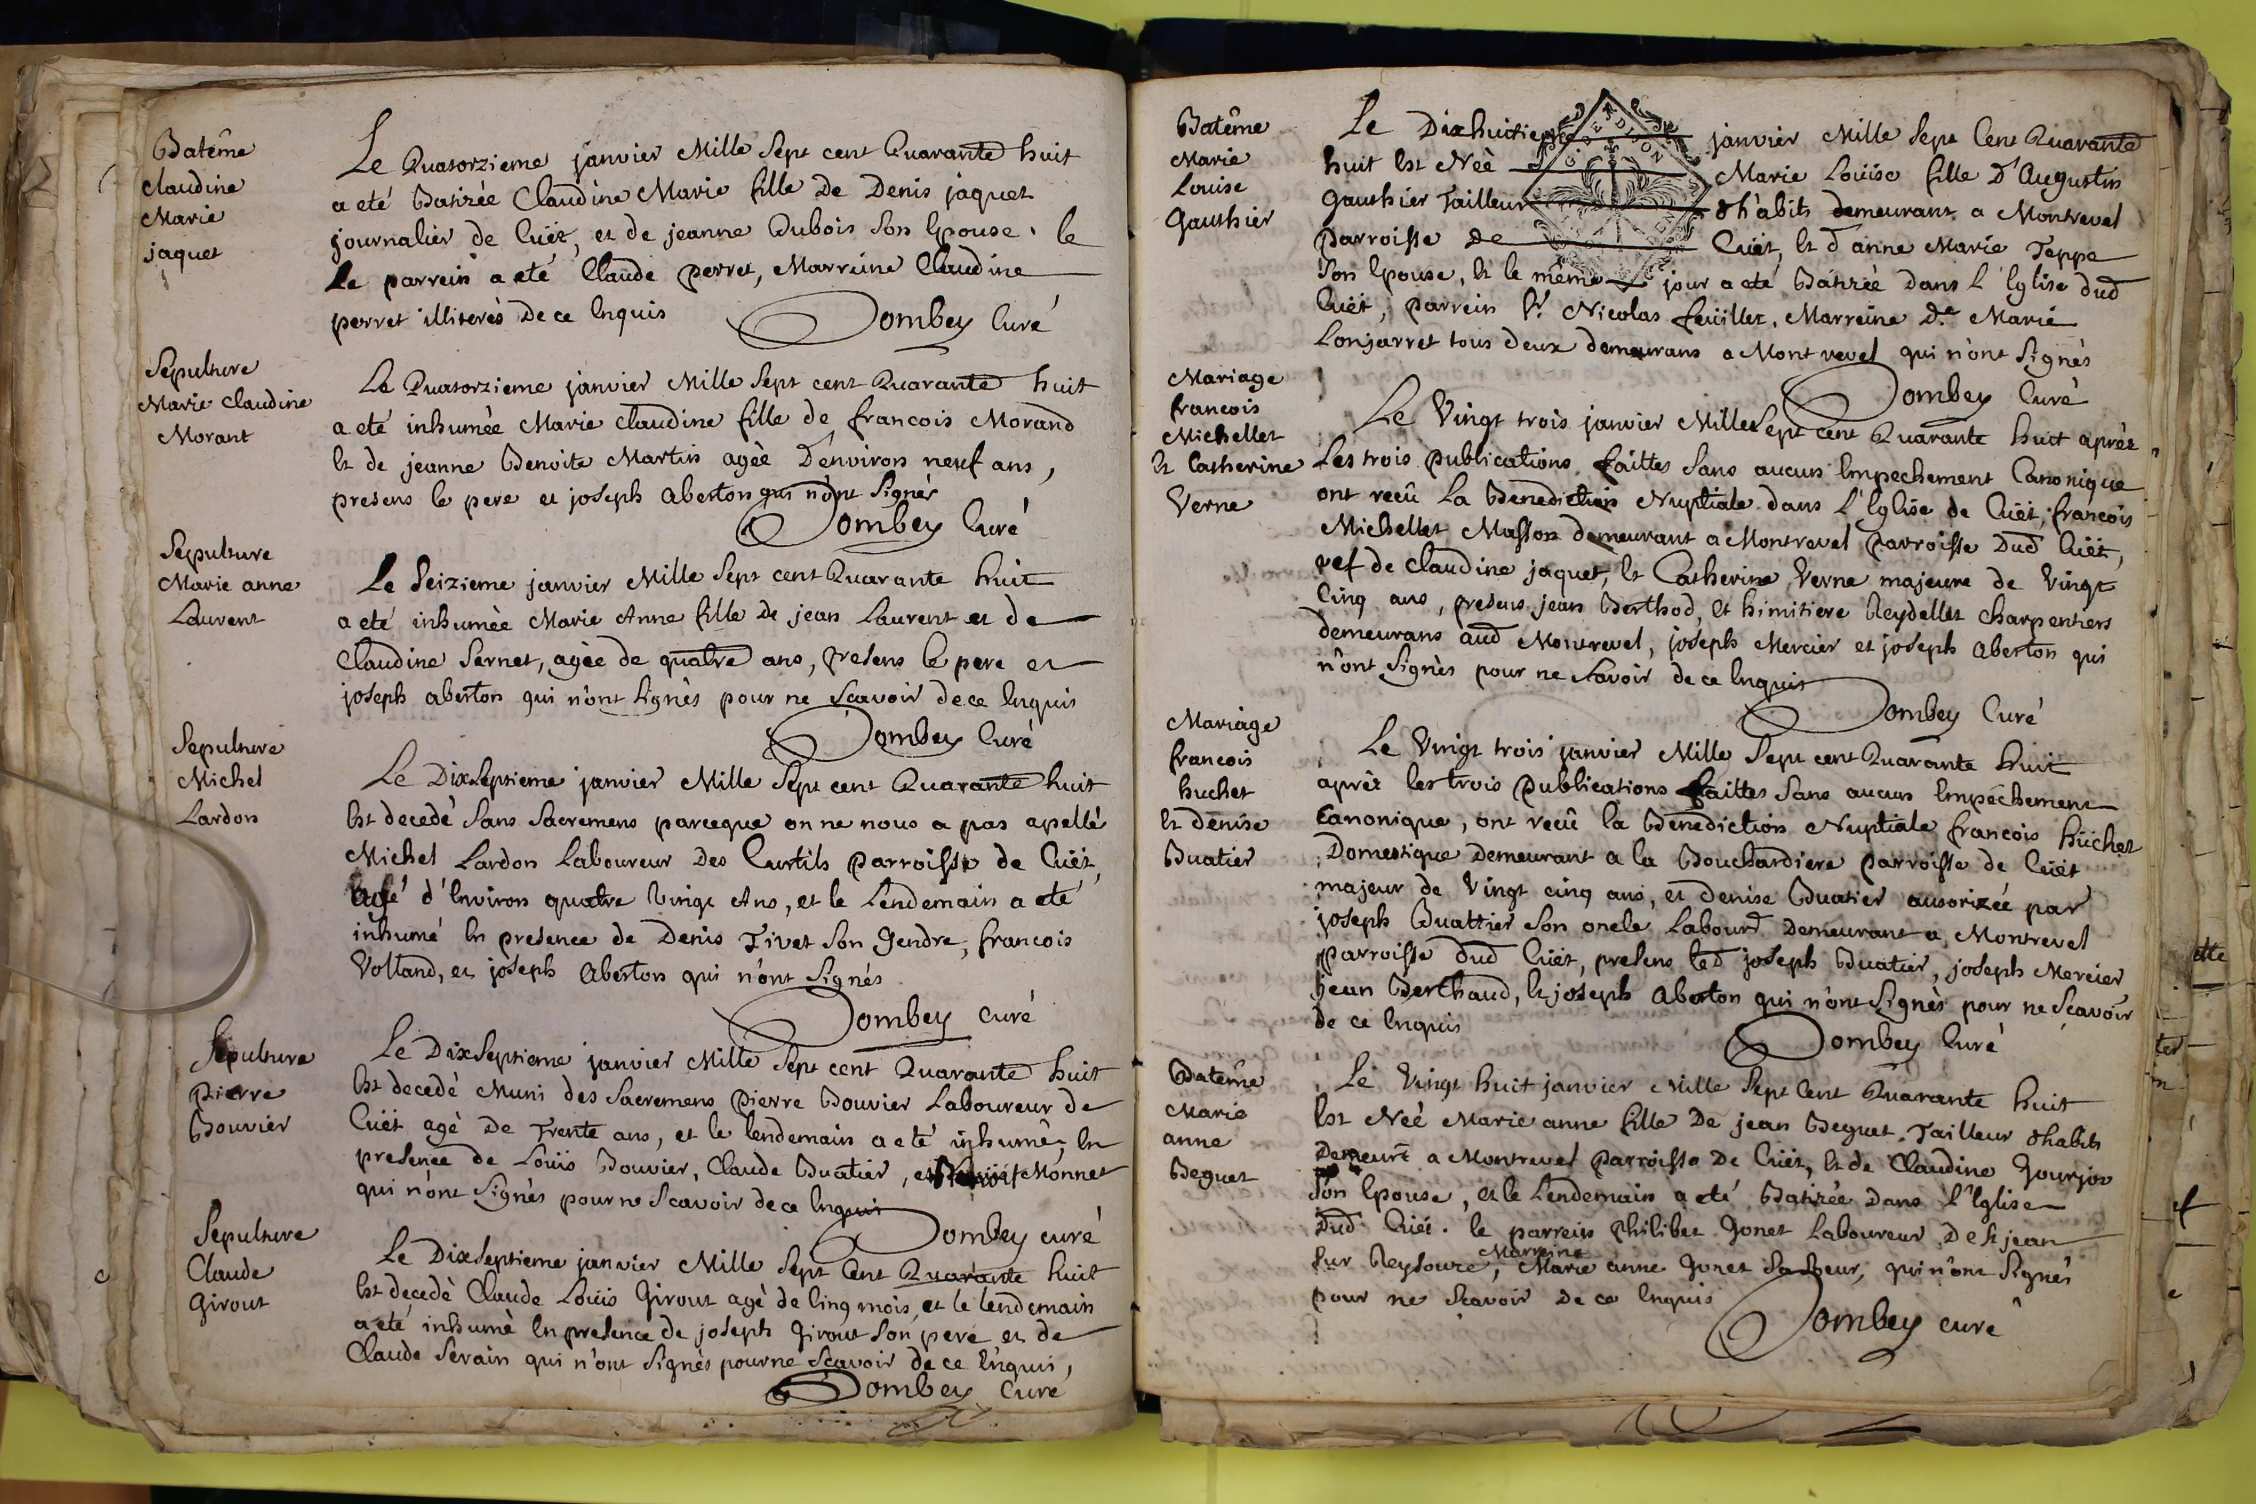 Batême
Claudine
Marie
jaquet
Le Quatorzieme janvier Mille Sept cent Quarante huit
a eté Batizée Claudine Marie fille De Denis jaquet
journalier de Cuët, et de jeanne Dubois Son Epouse. le
Le parrein a eté Claude perret, Marreine Claudine
perret illiterés De ce Enquis
Dombey Curé
Sepulture
Marie Claudine
Morant
Le Quatorzieme janvier Mille Sept cent Quarante huit
a eté inhumée Marie Claudine fille de francois Morand
Et de jeanne Benoite Martin agée D'environ neuf ans,
presens le pere et joseph Aberton qui n'ont Signés
Dombey Curé
Sepulture
Marie anne
Laurent
Le Seizieme janvier Mille Sept cent Quarante huit
a eté inhumée Marie Anne fille De jean Laurent et de
Claudine Sernet, agée de quatre ans, presens le pere et
joseph aberton qui n'ont Signés pour ne Scavoir de ce Enquis
Dombey Curé
Sepulture
Michel
Lardon
Le DixSeptieme janvier Mille Sept cent Quarante huit
Est decedé Sans Sacremens parceque on ne nous a pas apellé
Michel Lardon Laboureur Des Curtils Parroisse de Cuët,
agé d'Environ quatre Vingt Ans, et le Lendemain a eté
inhumé En presence de Denis Tivet Son Gendre, francois
Volland, et joseph Aberton qui n'ont Signés
Dombey curé
Sepulture
Pierre
Bouvier
Le DixSeptieme janvier Mille Sept cent Quarante huit
Est decedé Muni des Sacremens Pierre Bouvier Laboureur de
Cuët agé De Trente ans, et le lendemain a eté inhumé En
presence de Louïs Bouvier, Claude Buatier, et Monnet
qui n'ont Signés pour ne Scavoir de ce Enquis
Dombey curé
Sepulture
Claude
Girout
Le DixSeptieme janvier Mille Sept Cent Quarante huit
Est decedé Claude Louïs Girout agé de Cinq mois, et le lendemain
a eté inhumé En presence de joseph Girout Son pere et de
Claude Serain qui n'ont Signés pour ne Scavoir de ce Enquis,
Dombey Curé
Batême
Marie
Louise
Gauthier
Le Dixhuitieme janvier Mille Sept Cent Quarante
huit Est Neè Marie Louïse fille D'Augustin
Gauthier Tailleur d'habits demeurant a Montrevel
Parroisse de Cuët, Et d'anne Marie Teppe
Son Epouse, Et le même jour a eté Batizée Dans L'Eglise dud
Cuët, parrein Sr. Nicolas feüillet, Marreine De. Marie
Lonjarret tous deux demeurans a Montrevel qui n'ont Signés
Dombey Curé
Mariage
francois
Michellet
Et Catherine
Verne
Le Vingt trois janvier Mille Sept cent Quarante huit aprèz
Les trois Publications faittes Sans aucun Empechement Canonique
ont reçû La Benediction Nuptiale dans L'Eglise de Cuët, francois
Michellet Masson demeurant a Montrevel Parroisse Dud Cuët,
vef de Claudine jaquet, Et Catherine Verne majeure de Vingt
Cinq ans, presens jean Berthod, Et himitiere Reydellet charpentiers
demeurans aud Montrevel, joseph Mercier et joseph Aberton qui
n'ont Signés pour ne Savoir de ce Enquis
Dombey Curé
Mariage
francois
huchet
Et denise
Buatier
Le Vingt trois janvier Mille Sept cent Quarante huit
aprèz les trois Publications faittes Sans aucun Empéchement
Canonique, ont reçû la Benediction Nuptiale francois hüchet
Domestique Demeurant a la Bouchardiere Parroisse de Cuët
majeur de Vingt cinq ans, et Denise Buatier autorizée par
joseph Buattier Son oncle Labourr Demeurant a Montrevel
parroisse Dud Cuët, presens led joseph Buatier, joseph Mercier
jean Berthaud, Et joseph Aberton qui n'ont Signés pour ne Scavoir
de ce Enquis
Dombey Curé
Batême
Marie
anne
Beguet
Le Vingt huit janvier Mille Sept Cent Quarante huit
Est Neè Marie anne fille De jean Beguet Tailleur d'habits
Demeurt a Montrevel Parroisse De Cuët, Et de Claudine Gourjon
Son Epouse, et le Lendemain a eté Batizée Dans L'Eglise
Dud Cuët. le parrein Philibet Gonet Laboureur De St jean
Sur Reysouze, Marreine Marie anne Gonet Sa Seur, qui n'ont Signés
pour ne Scavoir De ce Enquis
Dombey curé